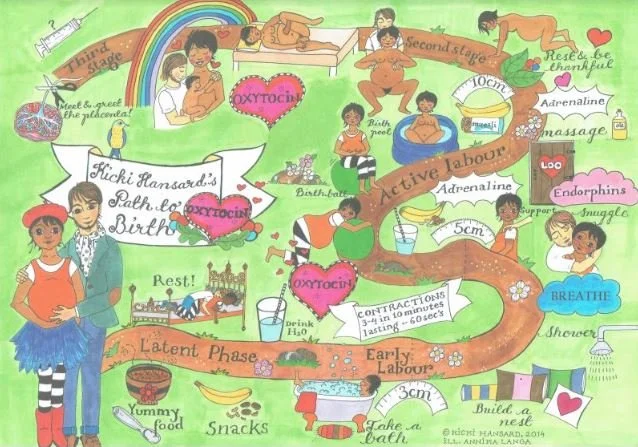 ?
Third
Stage
Meet & greet
the placenta!
OXYTOCIN
Second stage
Rest & be
thankful
10cm
Adrenaline
massage
oil
Birth
pool
Active labour
LOO
Endorphins
Snuggle
Support
Adrenaline
5cm
BREATHE
Shower
Birth ball
Kicki Hansard's
Path to
Birth
OXYTOCIN
OXYTOCIN
CONTRACTIONS
3-4 in 10 minutes
lasting ~ 60sec's
Rest!
Drink
H2O
Latent Phase
Early
Labour
3cm
Yummy
food
Snacks
Take a
bath
Build a
nest
© KICKI HANSARD, 2014
ILL. ANNIKA LANGA